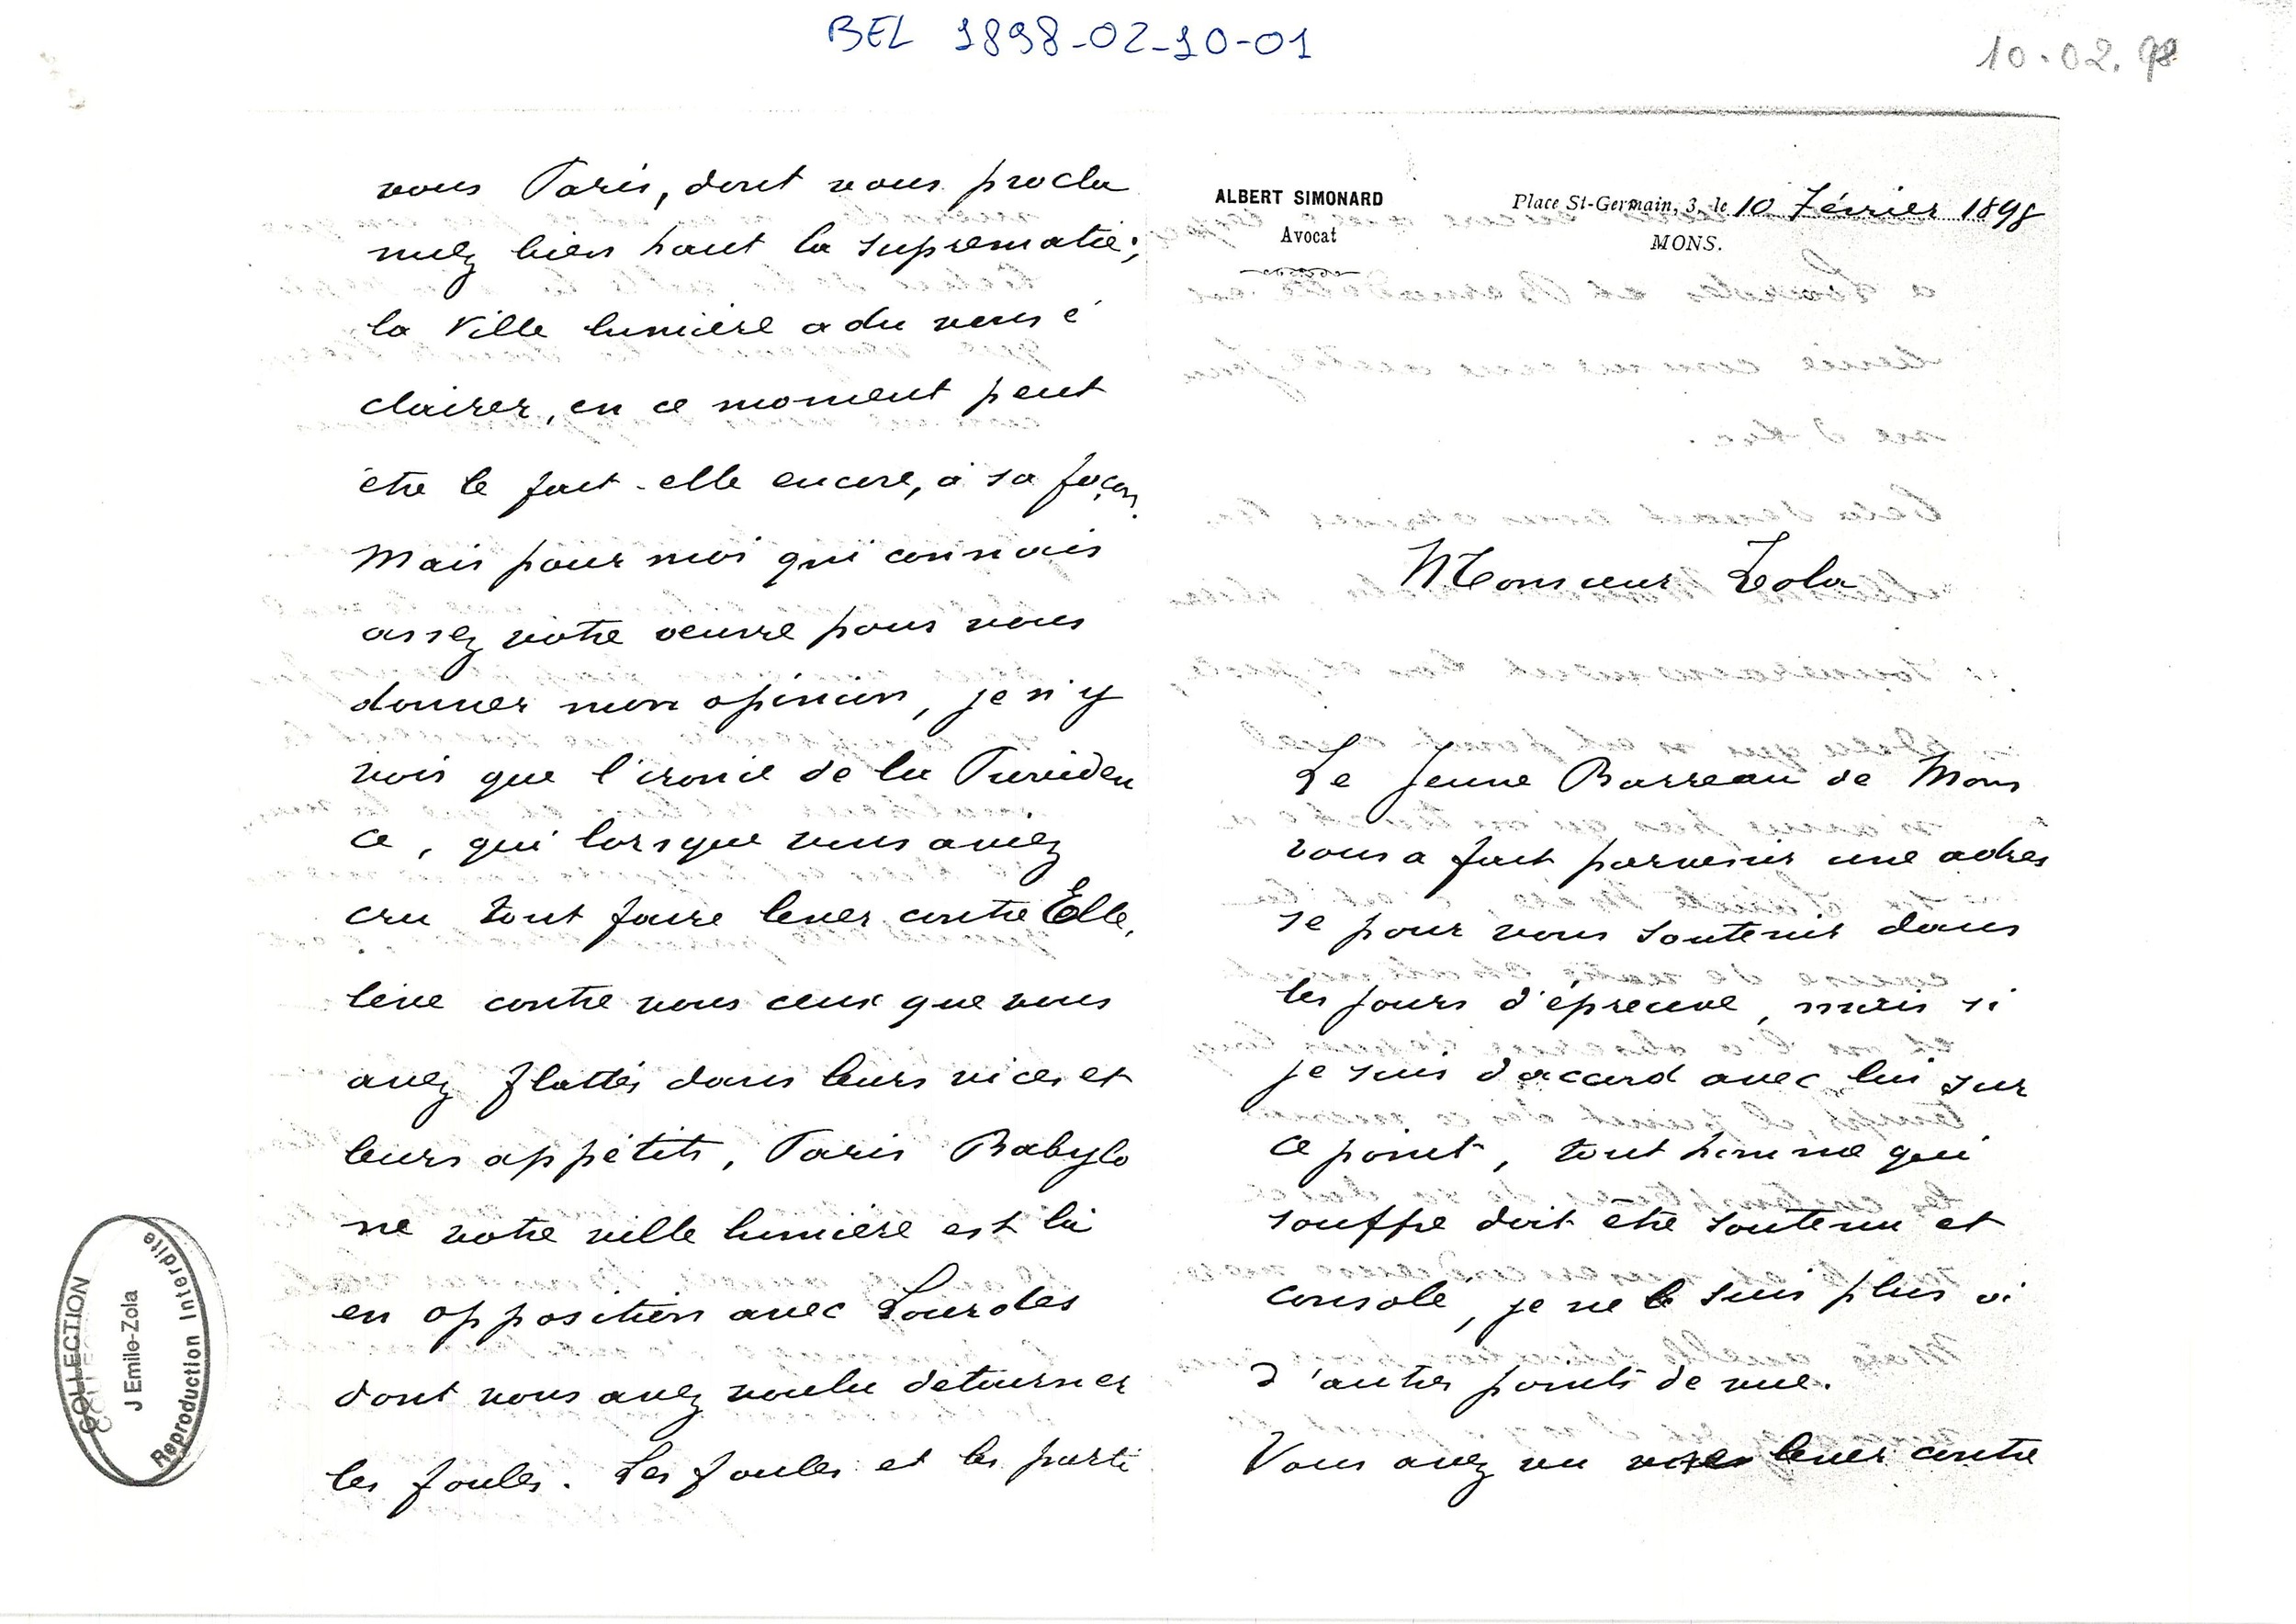 BEL 1898-02-10-01
10.02.98
ALBERT SIMONARD
Avocat
Place St-Germain, 3, le 10 Février 1898
MONS.
Monsieur Zola
Le Jeune Barreau de Mons
vous a fait parvenir une adres
se pour vous soutenir dans
les jours d'épreuve, mais si
je suis d'accord avec lui sur
ce point, tout homme qui
souffre doit etre soutenu et
consolé, je ne le suis plus à
d'autres points de vue.
Vous avez vu lever contre
vous Paris, dont vous procla
miez bien haut la suprematie;
la Ville lumière a du vous é
clairer, en ce moment peut
etre le fait-elle encore, à sa façon.
Mais pour moi qui connais
assez votre oeuvre pour vous
donner mon opinion, je n'y
vois que l'ironie de la Providen
ce, qui lorsque vous aviez
cru tout faire lever contre Elle,
lève contre vous ceux que vous
avez flattés dans leurs vices et
leurs appétits, Paris Babylo
ne votre ville lumière est là
en opposition avec Lourdes
dont vous avez voulu detourner
les foules. Les foules et les parti
COLLECTION
J Emile-Zola
Reproduction Interdite